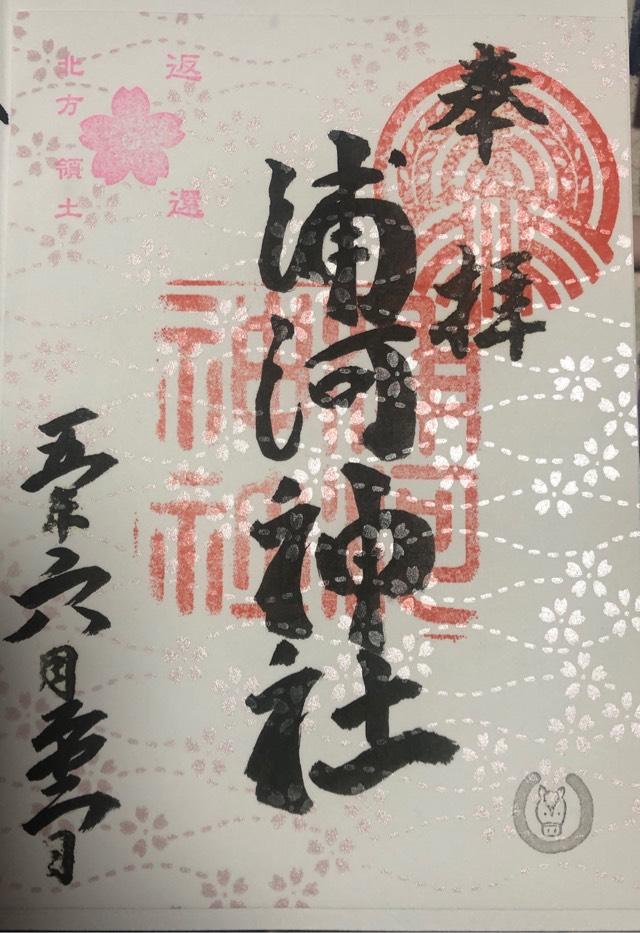 奉拝
浦河神社
浦河
神社
返還
北方領土
五年六月
日